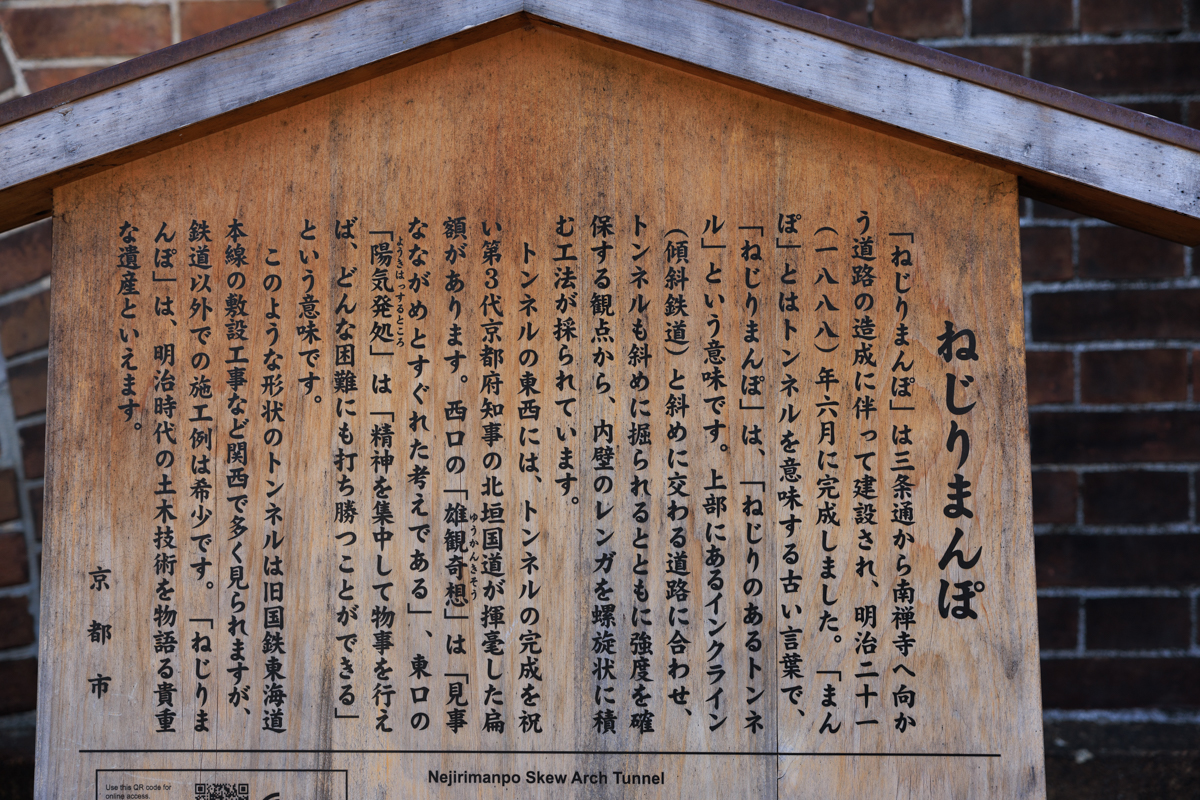 ねじりまんぽ
「ねじりまんぽ」は三条通から南禅寺へ向か
う道路の造成に伴って建設され、明治二十一
(一八八八)年六月に完成しました。「まん
ぽ」とはトンネルを意味する古い言葉で、
「ねじりまんぽ」は、「ねじりのあるトンネ
ル」という意味です。上部にあるインクライン
(傾斜鉄道)と斜めに交わる道路に合わせ、
トンネルも斜めに掘られるとともに強度を確
保する観点から、内壁のレンガを螺旋状に積
む工法が採られています。
トンネルの東西には、トンネルの完成を祝
い第3代京都府知事の北垣国道が揮毫した扁
額があります。西口の「雄観奇想」は「見事
ゆうかんきそう
なながめとすぐれた考えである」、東口の
「陽気発処」は「精神を集中して物事を行え
ようきはっするところ
ば、どんな困難にも打ち勝つことができる」
という意味です。
このような形状のトンネルは旧国鉄東海道
本線の敷設工事など関西で多く見られますが、
鉄道以外での施工例は希少です。「ねじりま
んぽ」は、明治時代の土木技術を物語る貴重
な遺産といえます。
京都市
Nejirimanpo Skew Arch Tunnel
Use this QR code for
online access.